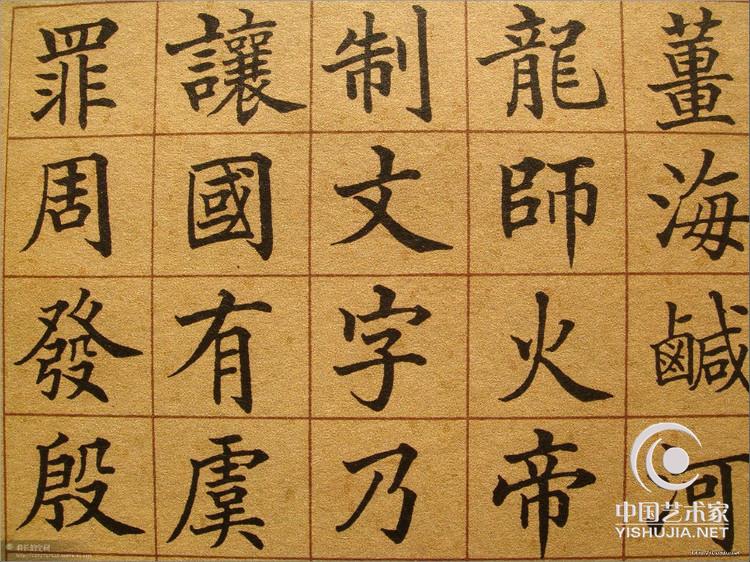 薑海鹹河
龍師火帝
制文字乃
讓國有虞
罪周發殷
中国艺术家
YISHUJIA.NET